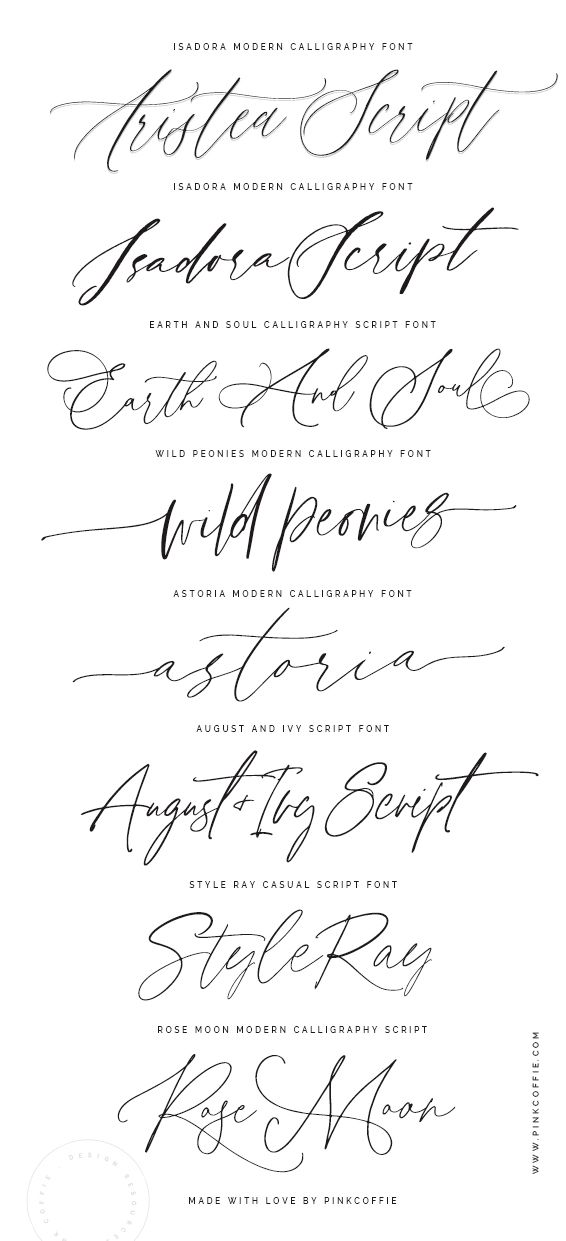 ISADORA MODERN CALLIGRAPHY FONT
Aristea Script
ISADORA MODERN CALLIGRAPHY FONT
Isadora Script
EARTH AND SOUL CALLIGRAPHY SCRIPT FONT
Earth And Soul
WILD PEONIES MODERN CALLIGRAPHY FONT
wild peonies
ASTORIA MODERN CALLIGRAPHY FONT
astoria
AUGUST AND IVY SCRIPT FONT
August + Ivy Script
STYLE RAY CASUAL SCRIPT FONT
Style Ray
ROSE MOON MODERN CALLIGRAPHY SCRIPT
Rose Moon
WWW.PINKCOFFIE.COM
COFFIE · DESIGN RESOURCES
MADE WITH LOVE BY PINKCOFFIE